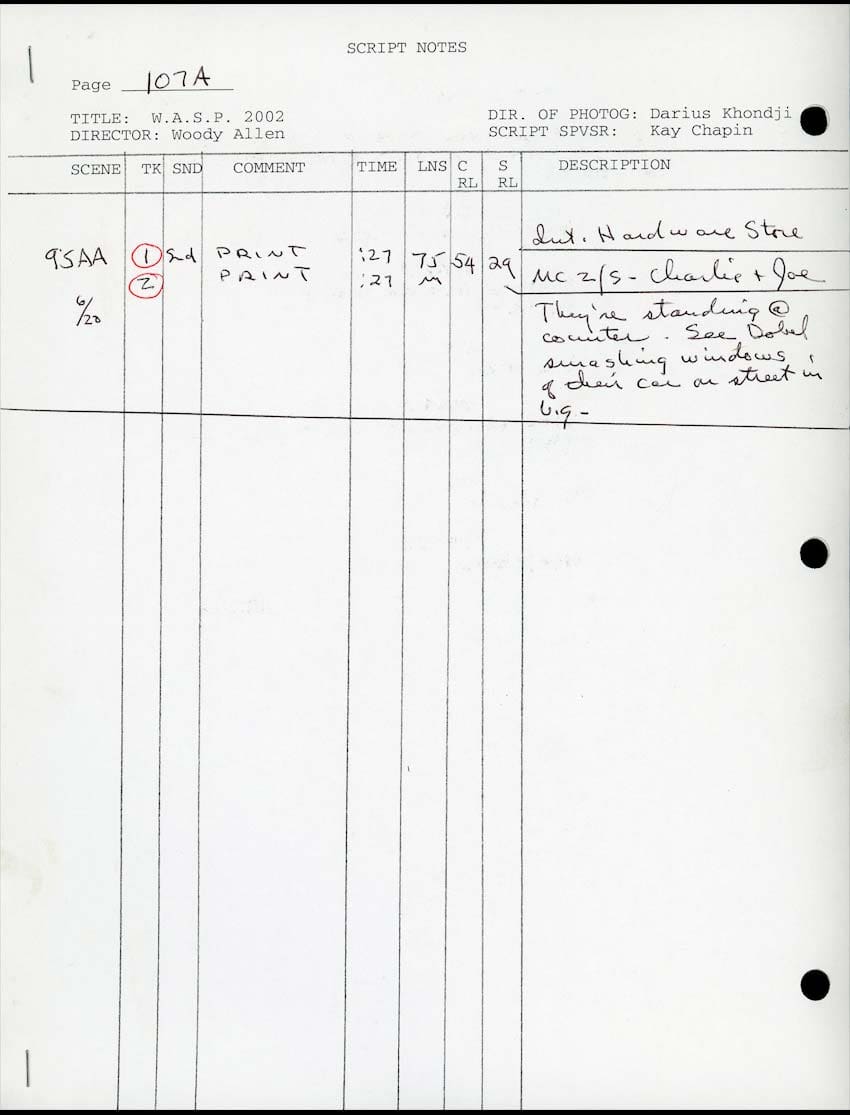 SCRIPT NOTES
Page 107A
TITLE: W.A.S.P. 2002
DIRECTOR: Woody Allen
DIR. OF PHOTOG: Darius Khondji
SCRIPT SPVSR: Kay Chapin
SCENE TK SND COMMENT TIME LNS C RL S RL DESCRIPTION
Int. Hardware Store
95AA 1 Snd PRINT :27 75 54 29
2 PRINT :27 m
MC 2/S - Charlie + Joe
6/20
They're standing @
counter. See Dobel
smashing windows
of their car on street in
b.g -